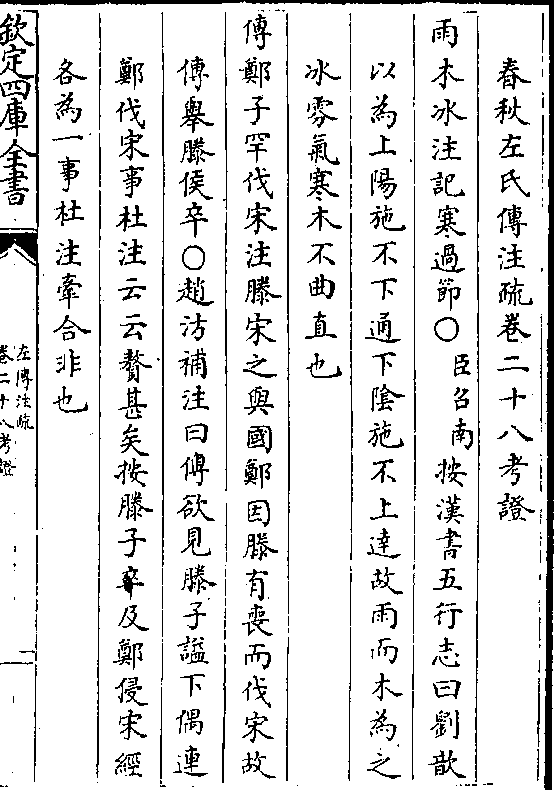 春秋左氏傳注疏卷二十八考證
雨木冰注記寒過節○臣召南按漢書五行志曰劉歆
以為上陽施不下通下陰施不上達故雨而木為之
冰雰氣寒木不曲直也
傳鄭子罕伐宋注滕宋之與國鄭因滕有喪而伐宋故
傳舉滕侯卒○趙汸補注曰傳欲見滕子諡下偶連
鄭伐宋事杜注云云贅甚矣按滕子卒及鄭侵宋經
各為一事杜注牽合非也
欽定四庫全書
左傳注疏
卷二十八考證
一